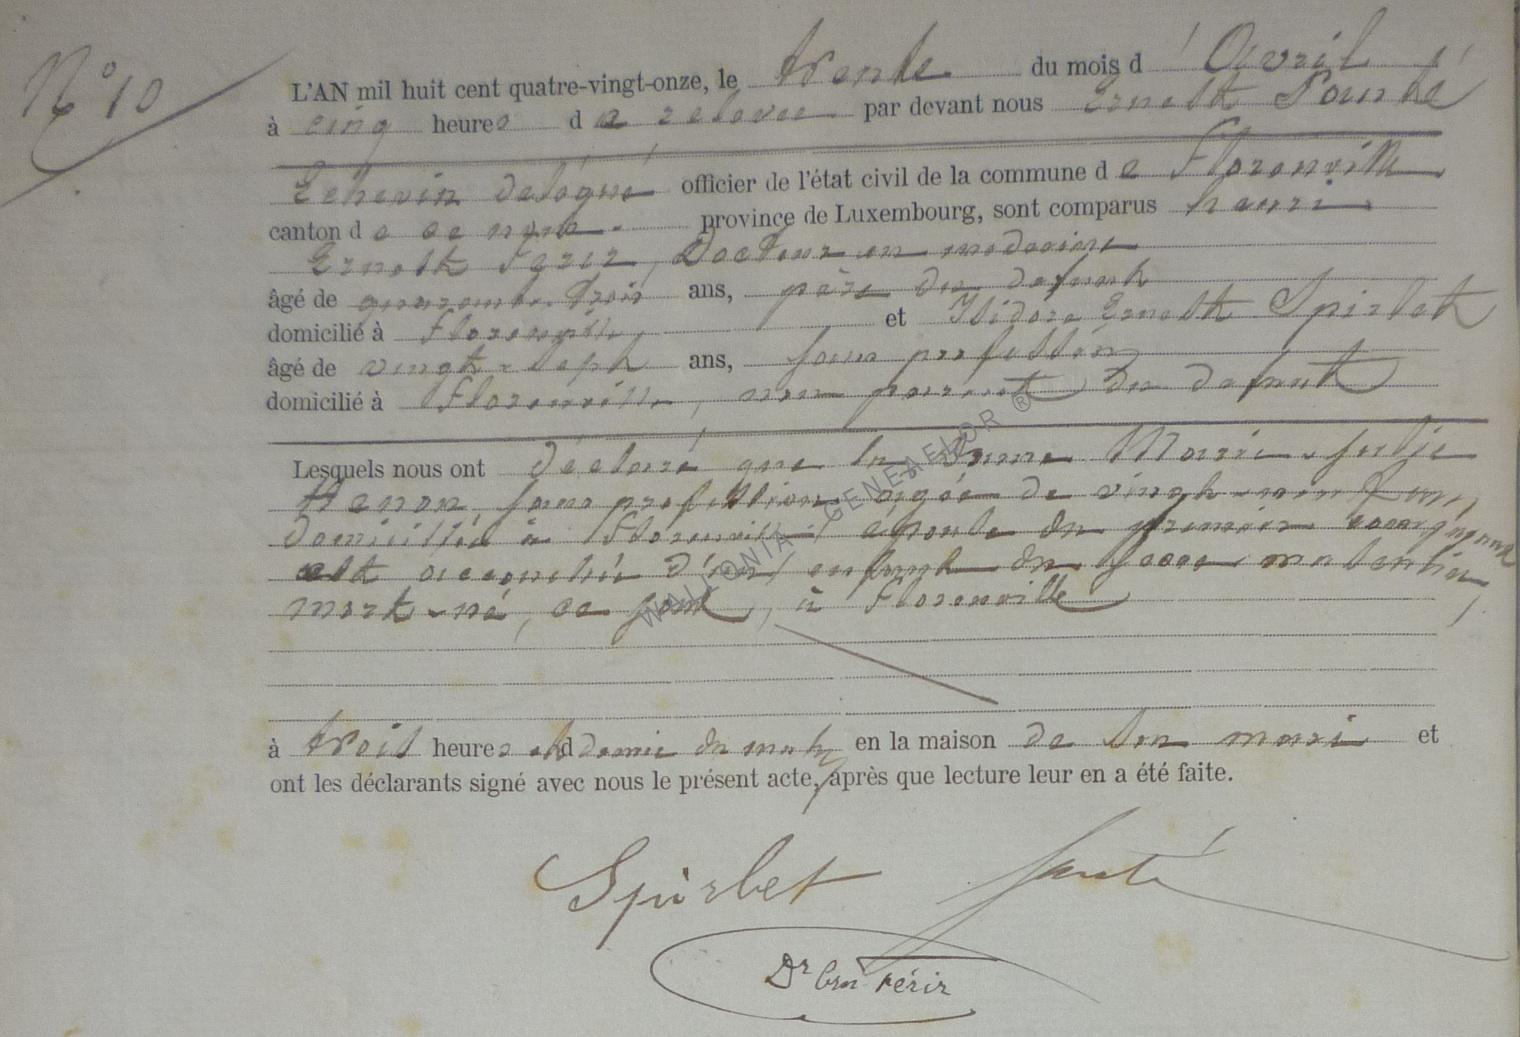 N° 10
L'AN mil huit cent quatre-vingt-onze, le trente du mois d'Avril
à cinq heures de relevée par devant nous Ernest Santé
Echevin délégué officier de l'état civil de la commune de Florenville
canton de ce nom. province de Luxembourg, sont comparus henri
Ernest Férir, Docteur en médecine
âgé de quarante-trois ans, père du défunt
domicilié à Florenville, et Isidore Ernest Spirlet
âgé de vingt-sept ans, sans profession
domicilié à Florenville, non parent du défunt
Lesquels nous ont déclaré que la Dame Marie-Julie
Henon sans profession âgée de vingt-neuf ans
domiciliée à Florenville épouse du premier comparant
est accouchée d'un enfant du sexe masculin,
mort-né, ce jour, à Florenville
à trois heures et demie du matin en la maison de son mari et
ont les déclarants signé avec nous le présent acte, après que lecture leur en a été faite.
Spirlet Santé
Dr Ern Férir
WALLONIA GENEAELOR ®